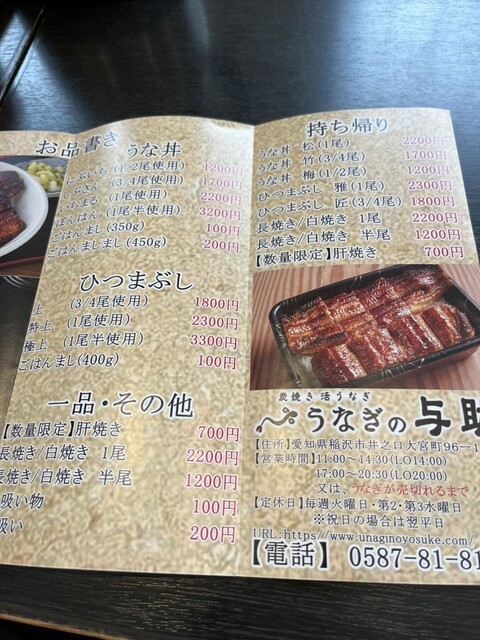 お品書き
うな丼
にぶいち (1/2尾使用) 1200円
しぶさん (3/4尾使用) 1700円
いちまる (1尾使用) 2200円
ばんはん (1尾半使用) 3200円
ごはんまし(350g) 100円
ごはんましまし(450g) 200円
ひつまぶし
上 (3/4尾使用) 1800円
特上 (1尾使用) 2300円
極上 (1尾半使用) 3300円
ごはんまし(400g) 100円
一品・その他
【数量限定】肝焼き 700円
長焼き/白焼き 1尾 2200円
長焼き/白焼き 半尾 1200円
吸い物 100円
吸い 200円
持ち帰り
うな丼 松(1尾) 2200円
うな丼 竹(3/4尾) 1700円
うな丼 梅(1/2尾) 1200円
ひつまぶし 雅(1尾) 2300円
ひつまぶし 匠(3/4尾) 1800円
長焼き/白焼き 1尾 2200円
長焼き/白焼き 半尾 1200円
【数量限定】肝焼き 700円
炭焼き 活うなぎ
うなぎの与助
【住所】愛知県稲沢市井之口大宮町96-1
【営業時間】11:00~14:30(LO14:00)
17:00~20:30(LO20:00)
又は、うなぎが売切れるまで
【定休日】毎週火曜日・第2・第3水曜日
※祝日の場合は翌平日
URL:https//www.unaginoyosuke.com/
【電話】 0587-81-81